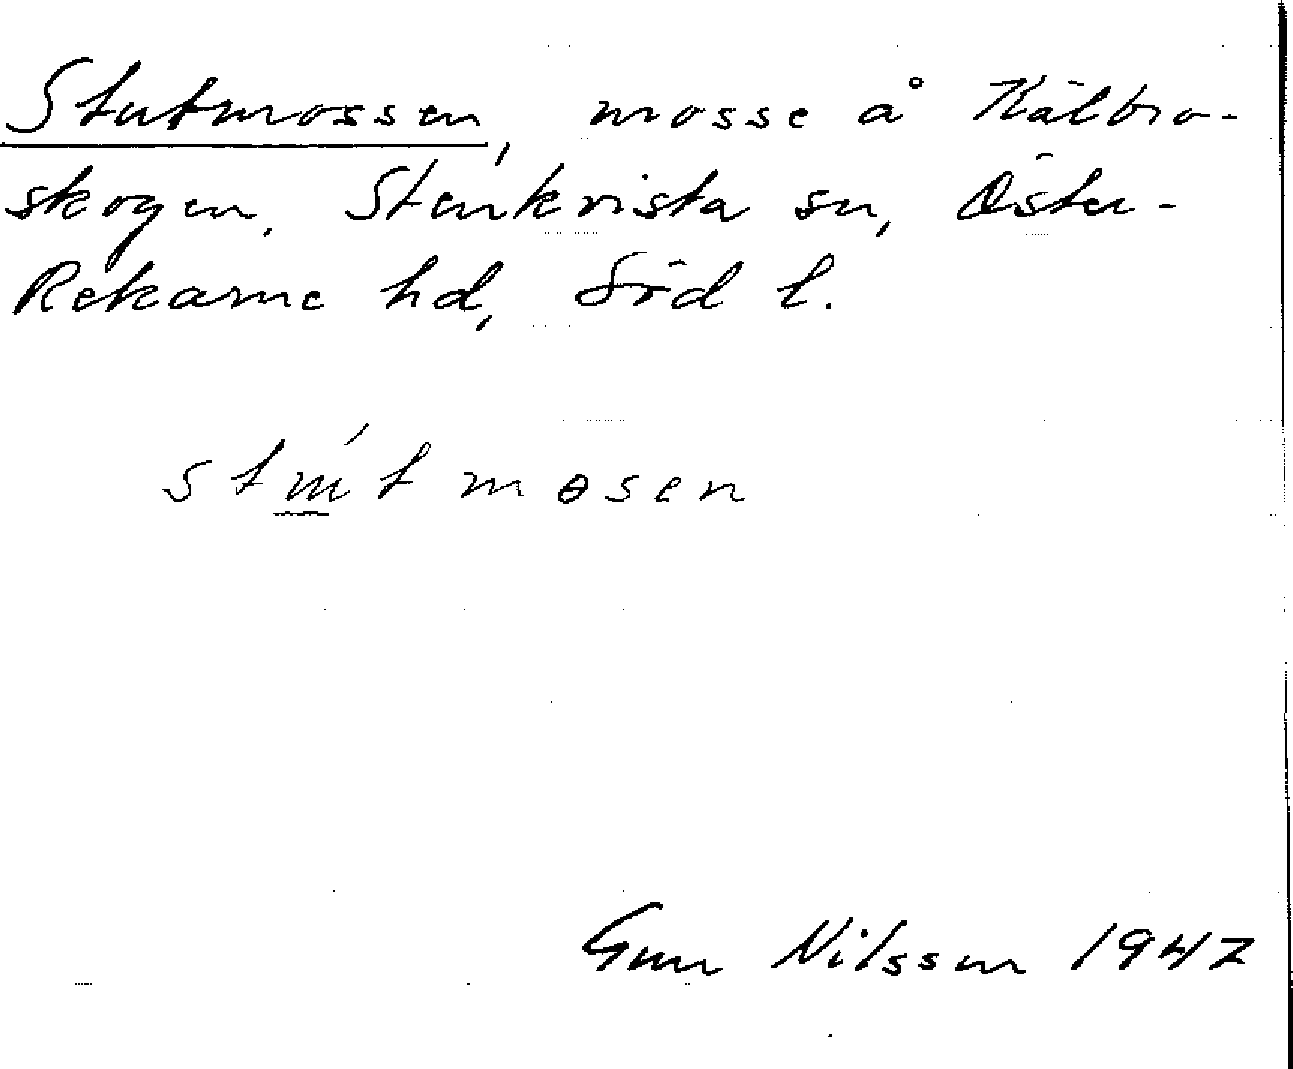 Stutmossen, mosse å Kälbro-
skogen, Stenkvista sn, Öster-
Rekarne hd, Söd l.
mɵsen
Gun Nilsson 1942